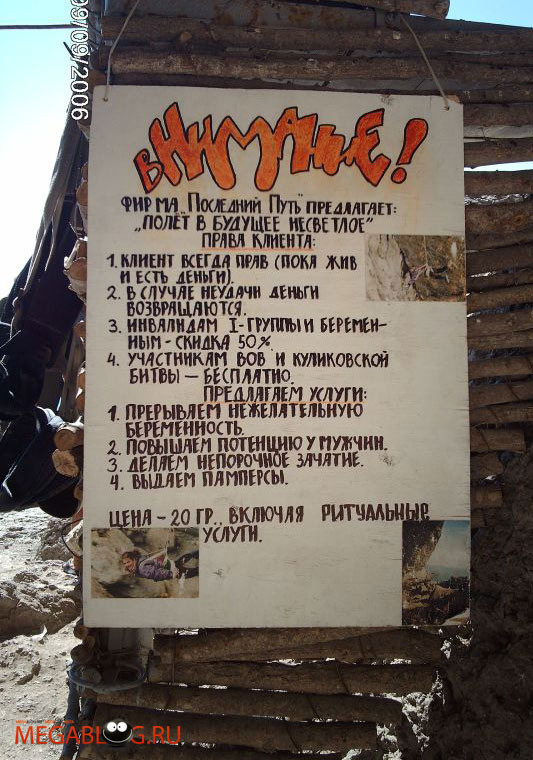 09/09/2006
ВНИМАНИЕ!
ФИРМА „ПОСЛЕДНИЙ ПУТЬ" ПРЕДЛАГАЕТ:
„ПОЛЁТ В БУДУЩЕЕ НЕСВЕТЛОЕ"
ПРАВА КЛИЕНТА:
1. КЛИЕНТ ВСЕГДА ПРАВ (ПОКА ЖИВ
И ЕСТЬ ДЕНЬГИ).
2. В СЛУЧАЕ НЕУДАЧИ ДЕНЬГИ
ВОЗВРАЩАЮТСЯ.
3. ИНВАЛИДАМ I-ГРУППЫ И БЕРЕМЕН-
НЫМ - СКИДКА 50%.
4. УЧАСТНИКАМ ВОВ И КУЛИКОВСКОЙ
БИТВЫ — БЕСПЛАТНО.
ПРЕДЛАГАЕМ УСЛУГИ:
1. ПРЕРЫВАЕМ НЕЖЕЛАТЕЛЬНУЮ
БЕРЕМЕННОСТЬ.
2. ПОВЫШАЕМ ПОТЕНЦИЮ У МУЖЧИН.
3. ДЕЛАЕМ НЕПОРОЧНОЕ ЗАЧАТИЕ.
4. ВЫДАЕМ ПАМПЕРСЫ.
ЦЕНА - 20 ГР., ВКЛЮЧАЯ РИТУАЛЬНЫЕ
УСЛУГИ.
MEGABLOG.RU